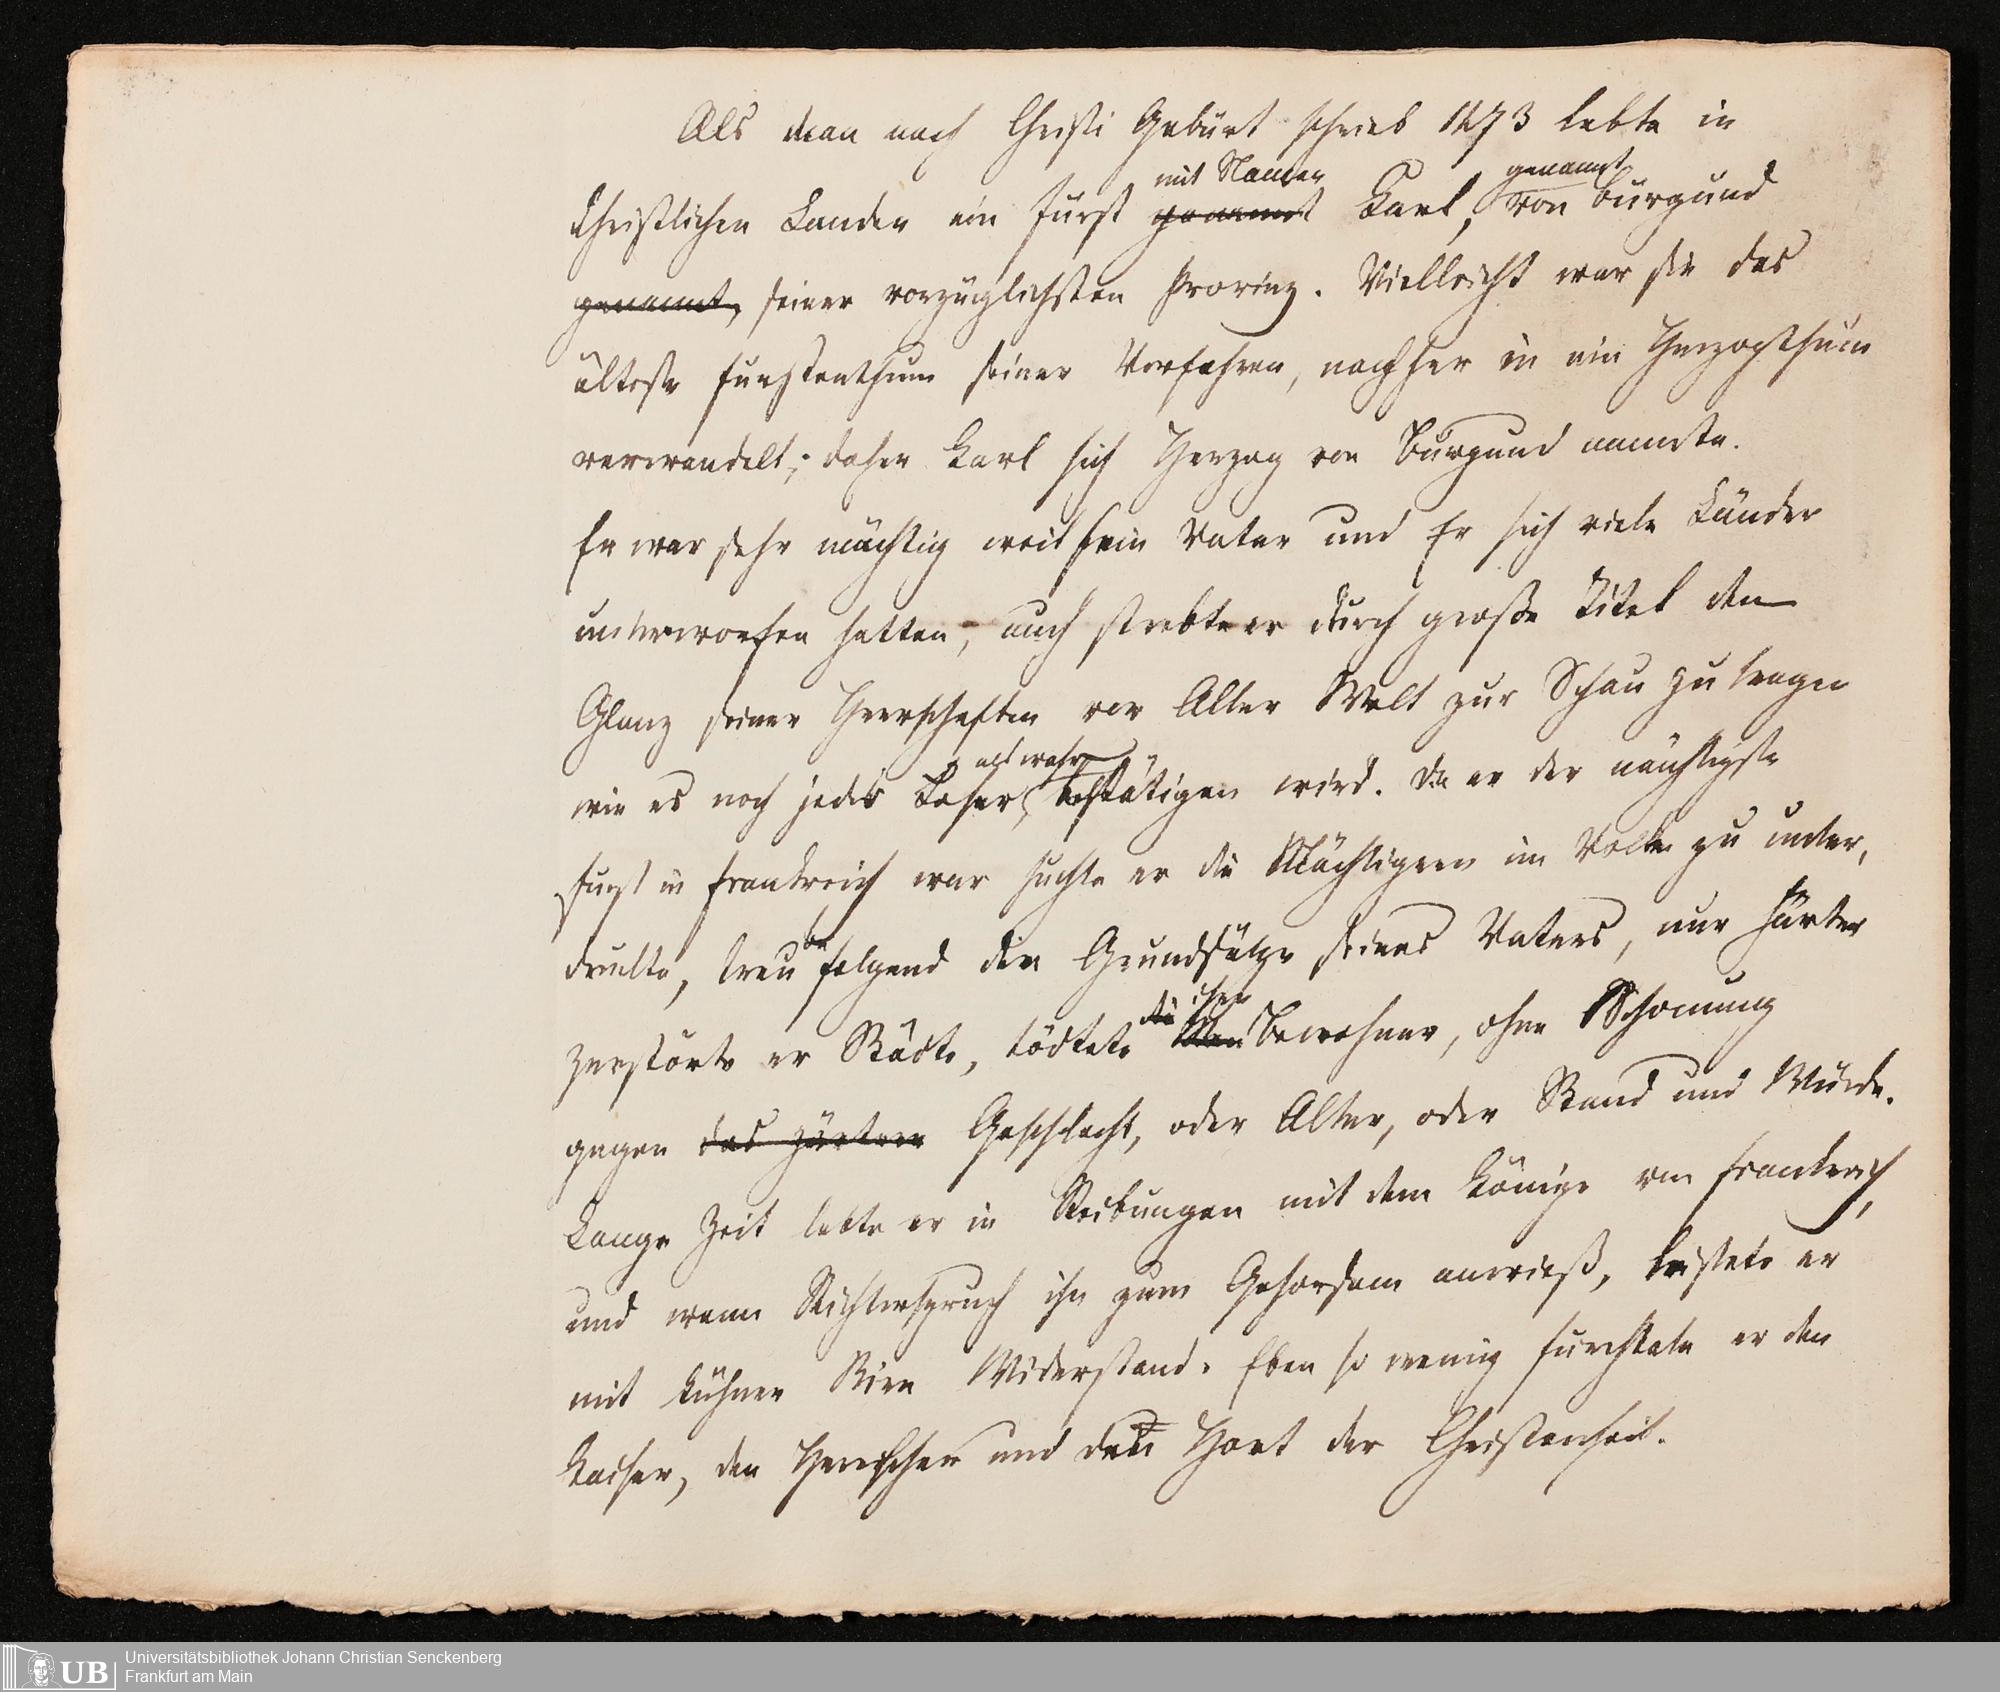 Als man nach Christi Geburt schrieb 1473 lebte in
mit Namen genannt
Christlichen Landen ein Fürst genannt Karl, von Burgund
genannt, seiner vorzüglichsten Provinz. Vielleicht war sie das
älteste Fürstenthum seiner Vorfahren, nachher in ein Herzogthum
verwandelt; daher Karl sich Herzog von Burgund nannte.
Er war sehr mächtig weil sein Vater und Er sich viele Länder
unterworfen hatten, auch strebte er durch große Titel den
Glanz seiner Herrschaften vor Aller Welt zur Schau zu tragen
als wahr
wie es noch jeder Leser, bestätigen wird. Da er der mächtigste
Fürst in Frankreich war suchte er die Mächtigern im Volke zu unter,
be
drucken, treu folgend den Grundsätzen seines Vaters, nur härter
die ihre
zerstörte er Städte, tödtete Bewohner, ohne Schonung
gegen das zärtere Geschlecht, oder Alter, oder Stand und Würde.
Lange Zeit lebte er in Reibungen mit dem Könige von Frankreich,
und wenn Richterspruch ihn zum Gehorsam anwieß, leistete er
mit kühner Stirn Widerstand. Eben so wenig furchtete er den
Kaiser, den Herrscher und den Hort der Christenheit.
UB
Universitätsbibliothek Johann Christian Senckenberg
Frankfurt am Main